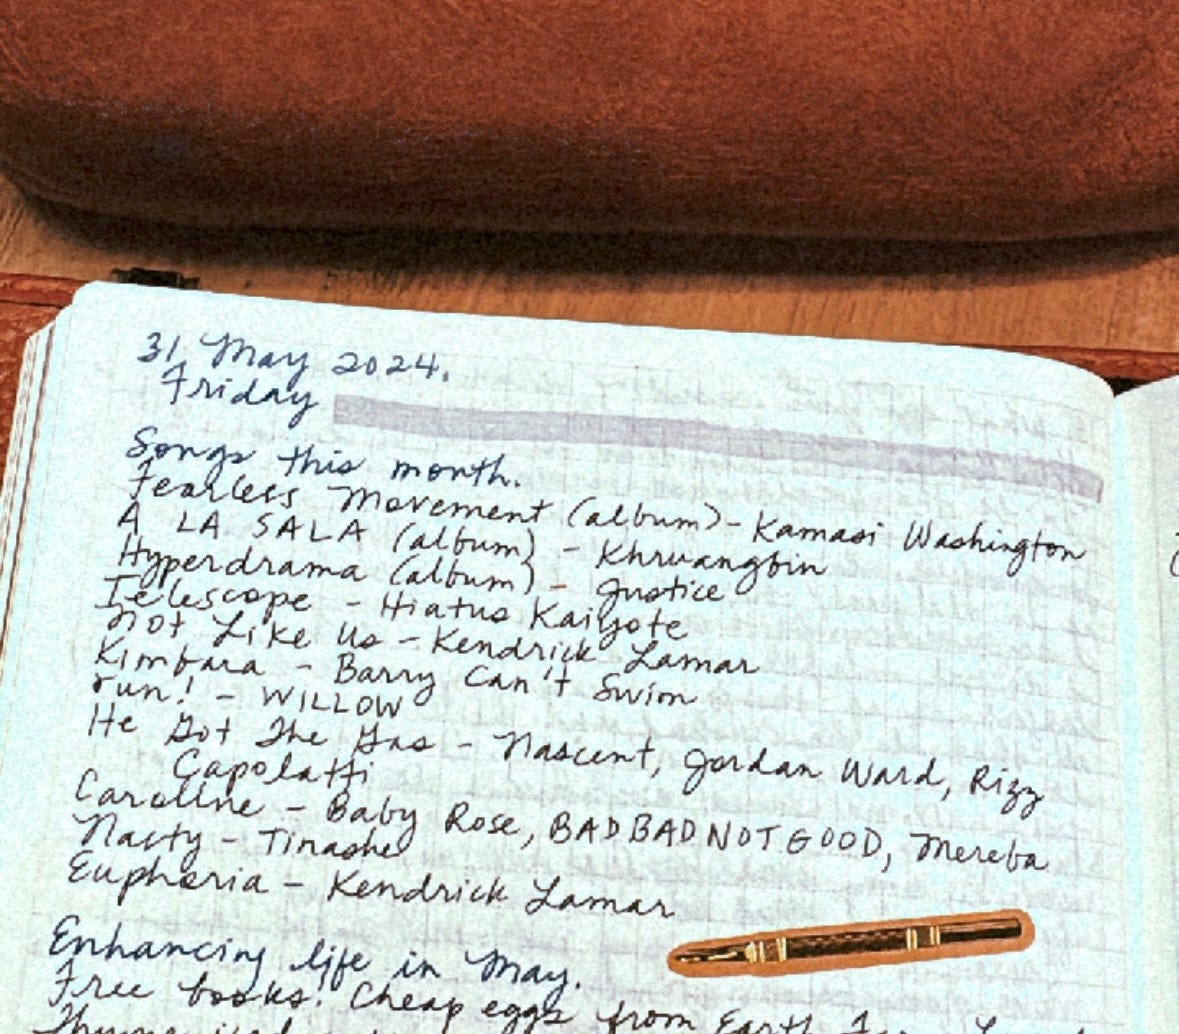 31 May 2024.
Friday
Songs this month.
Fearless Movement (album) - Kamasi Washington
A LA SALA (album) - Khruangbin
Hyperdrama (album) - Justice
Telescope - Hiatus Kaiyote
Not Like Us - Kendrick Lamar
Kimbara - Barry Can't Swim
run! - WILLOW
He Got The Gas - Nascent, Jordan Ward, Rizz
Capolatti
Caroline - Baby Rose, BADBADNOTGOOD, Mereba
Nasty - Tinashe
Euphoria - Kendrick Lamar
Enhancing life in May.
Free books. Cheap eggs from Earth